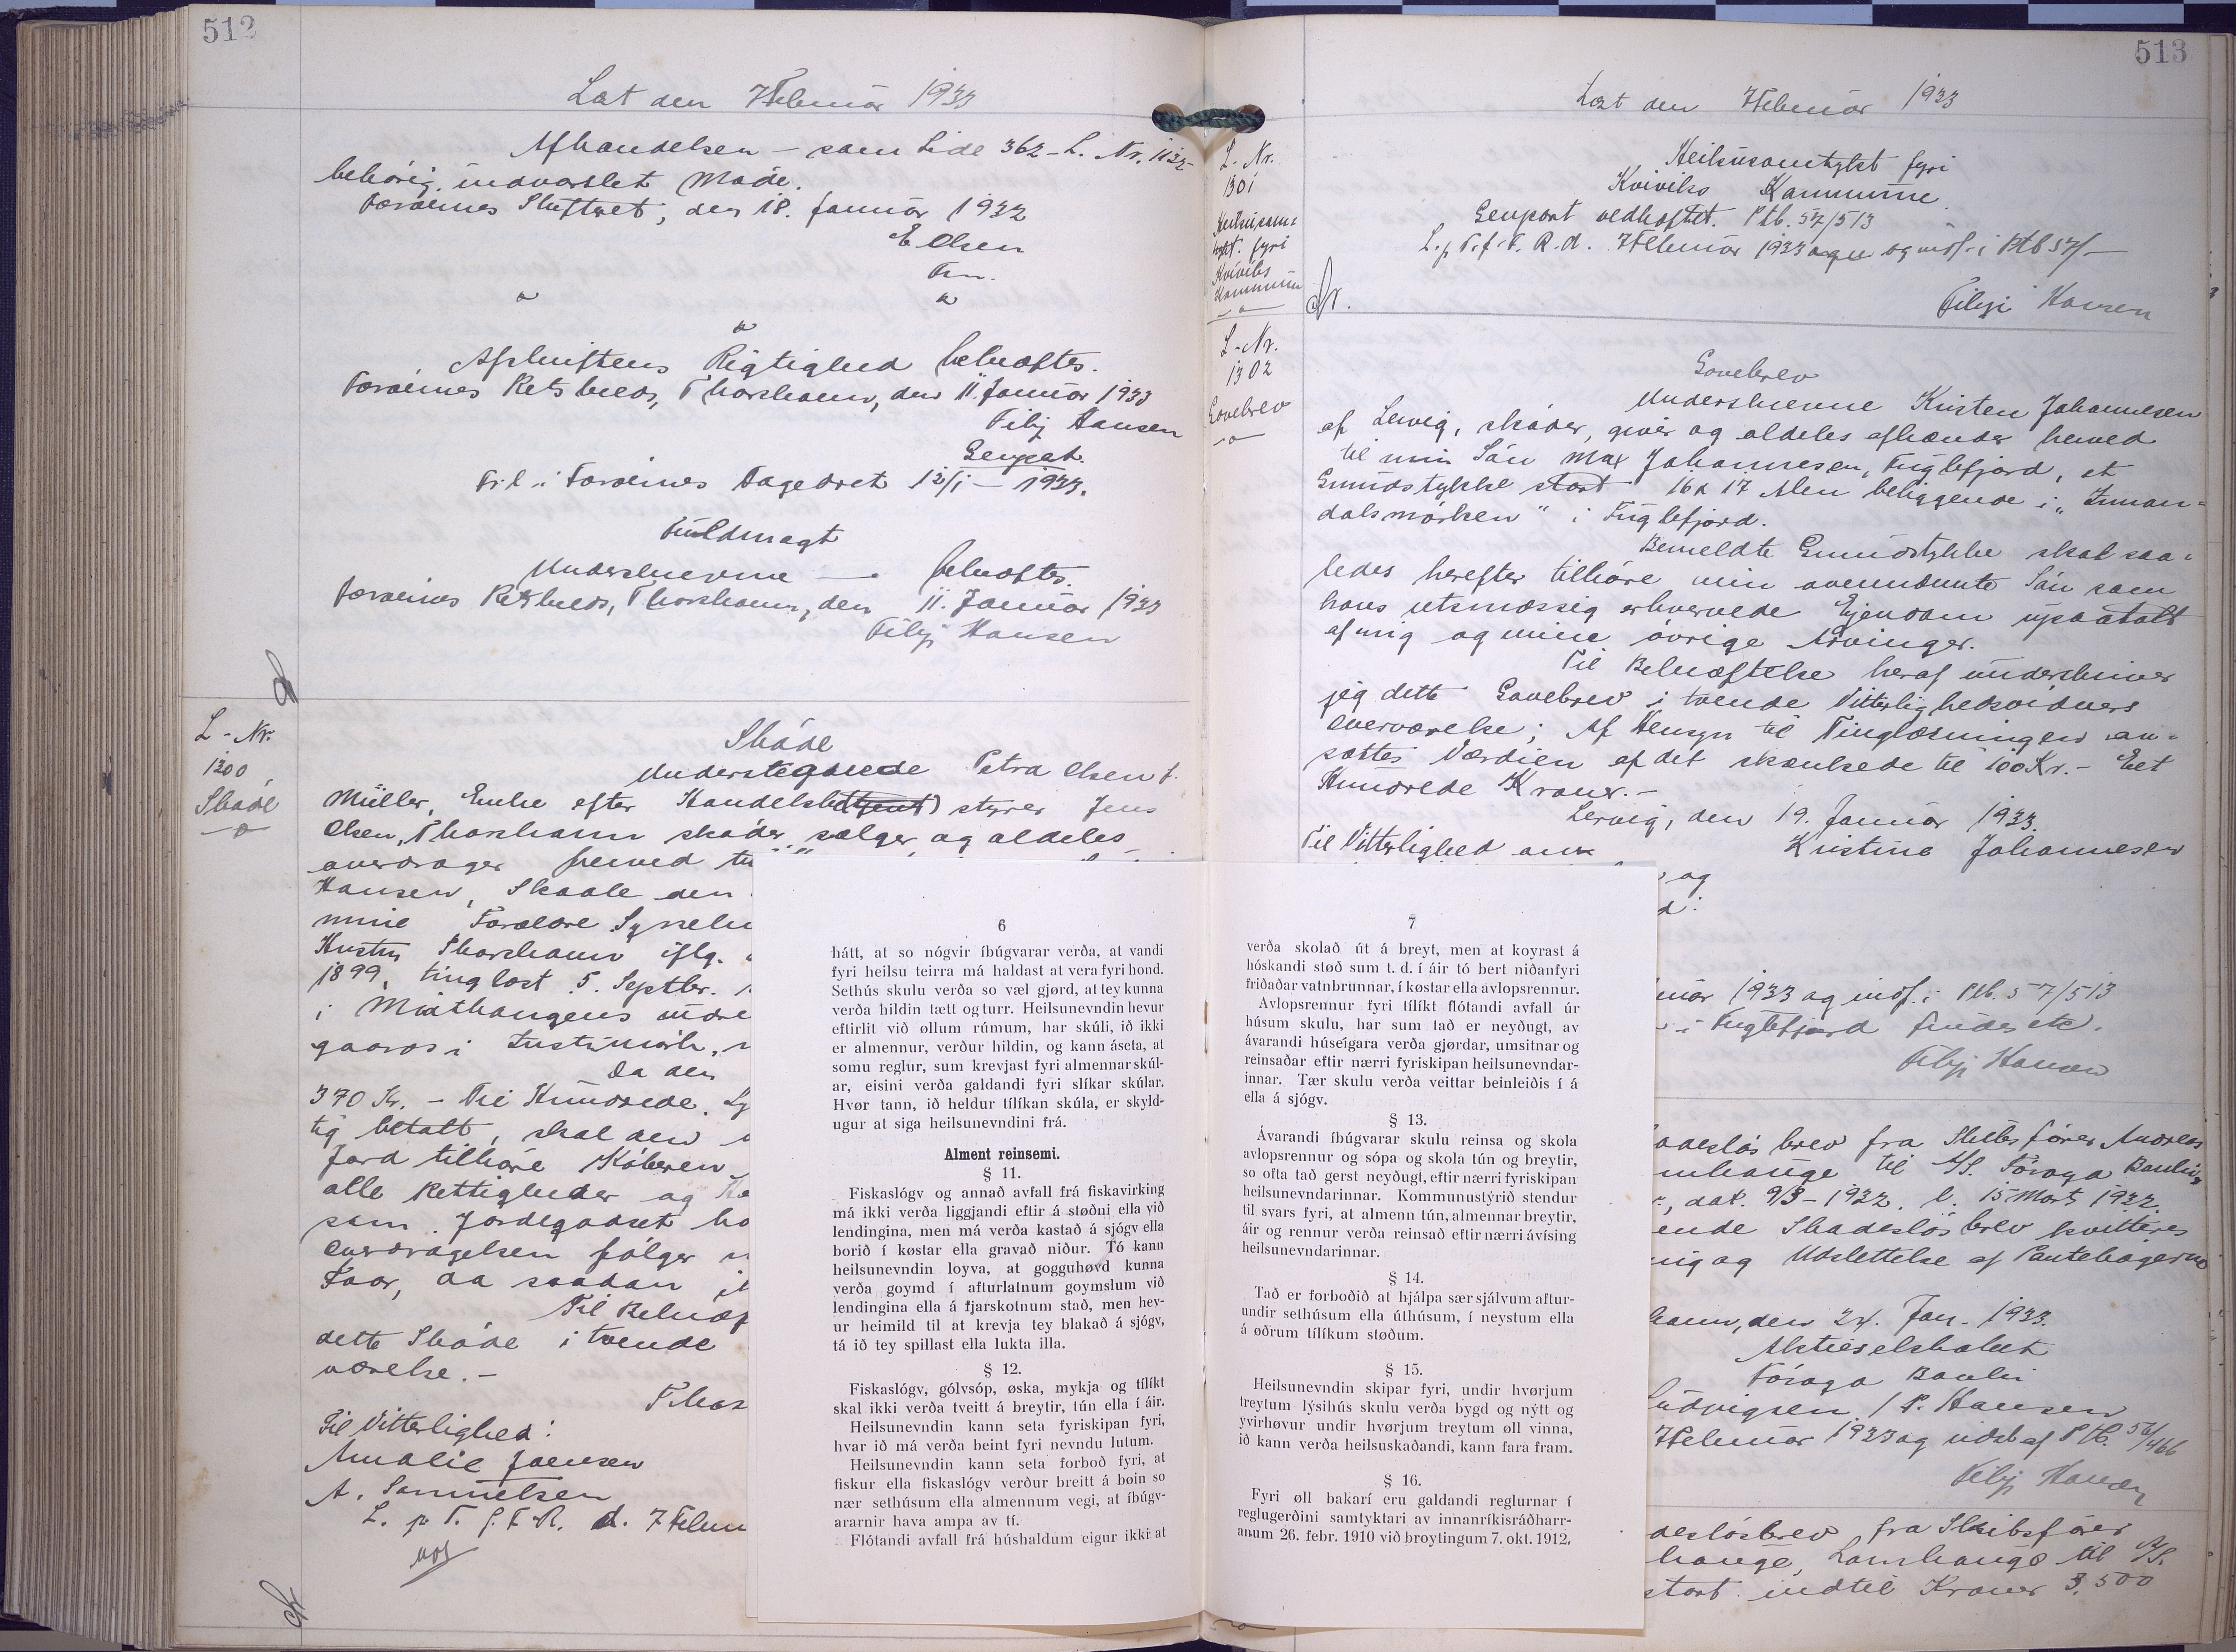 512
Læst den 7 Februar 1933
Afhandelsen – som Side 362 – L. Nr. 1132 –
behørig indvarslet Møde.
Færøernes Skifteret, den 18. Januar 1932
E Olsen
Fm.
Afskriftens Rigtighed bekræftes.
Færøernes Retskreds, Thorshavn, den 11. Januar 1933
Filip Hansen
Genpart.
Fr. l. i Færøernes Dagedret 12/1 – 1933.
Fuldmagt
Underskrevne — bekræftes.
Færøernes Retskreds, Thorshavn, den 11. Januar 1933
Filip Hansen
L - Nr.
1300
Skøde
Skøde
Undertegnede Petra Olsen f.
Müller, Enke efter Handelsbestyrer Jens
Olsen, Thorshavn skøder, sælger og aldeles
overdrager herved til
Hansen, Skaale den
mine Forældre
Hustru Thorshavn iflg.
1899, tinglæst 5. Septbr.
i Midthaugens indre
gaards i
Da den
370 Kr. – Tre Hundrede
tig betalt, skal den
Jord tilhøre Køberen
alle Rettigheder og
som Jordegodset
Overdragelsen følger
Faar, da saadan
Til Bekræf
dette Skøde i tvende
værelse. –
Thor
Til Vitterlighed:
Amalie Joensen
A. Samuelsen
L. p T. f. F. R. d. 7 Febru
6
hátt, at so nógvir íbúgvarar verða, at vandi
fyri heilsu teirra má haldast at vera fyri hond.
Sethús skulu verða so væl gjørd, at tey kunna
verða hildin tætt og turr. Heilsunevndin hevur
eftirlit við øllum rúmum, har skúli, ið ikki
er almennur, verður hildin, og kann áseta, at
somu reglur, sum krevjast fyri almennar skúl-
ar, eisini verða galdandi fyri slíkar skúlar.
Hvør tann, ið heldur tílíkan skúla, er skyld-
ugur at siga heilsunevndini frá.
Alment reinsemi.
§ 11.
Fiskaslógv og annað avfall frá fiskavirking
má ikki verða liggjandi eftir á støðni ella við
lendingina, men má verða kastað á sjógv ella
borið í køstar ella gravað niður. Tó kann
heilsunevndin loyva, at gogguhøvd kunna
verða goymd í afturlatnum goymslum við
lendingina ella á fjarskotnum stað, men hev-
ur heimild til at krevja tey blakað á sjógv,
tá ið tey spillast ella lukta illa.
§ 12.
Fiskaslógv, gólvsóp, øska, mykja og tílíkt
skal ikki verða tveitt á breytir, tún ella í áir.
Heilsunevndin kann seta fyriskipan fyri,
hvar ið má verða beint fyri nevndu lutum.
Heilsunevndin kann seta forboð fyri, at
fiskur ella fiskaslógv verður breitt á bøin so
nær sethúsum ella almennum vegi, at íbúgv-
ararnir hava ampa av tí.
Flótandi avfall frá húshaldum eigur ikki at
513
Læst den 7 Februar 1933
L - Nr.
1301
Heilsusam-
tykt fyri
Kvívíks
Kommunu
Heilsusamtykt fyri
Kvívíks Kommunu
Genpart vedhæftet. Ptb. 57/513
L. p T. f. F. R. d. 7 Februar 1933 og indf. i Ptb 57/–
Filip Hansen
L - Nr.
1302
Gavebrev
Gavebrev
Underskrevne Kristen Johannesen
af Lervig, skøder, giver og aldeles afhænder herved
til min Søn Max Johannesen, Fuglefjord, et
Grundstykke stort 16 x 17 Alen beliggende i „Innan-
dalsmørken" i Fuglefjord.
Bemeldte Grundstykke skal saa-
ledes herefter tilhøre min ovennævnte Søn som
hans retsmæssig erhvervede Ejendom upaatalt
af mig og mine øvrige Arvinger.
Til Bekræftelse heraf underskriver
jeg dette Gavebrev i tvende Vitterlighedsvidners
Overværelse; Af Hensyn til Tinglæsningen an-
sættes Værdien af det skænkede til 100 Kr. – Eet
Hundrede Kroner. –
Lervig, den 19. Januar 1933.
Til Vitterlighed om
Kristine Johannesen
og
d:
ruar 1933 og indf. i Ptb. 57/513
i Fuglefjord findes etc.
Filip Hansen
adesløsbrev fra Skibsfører Andreas
mhauge til A/S. Føroya Banki,
, dat. 9/3 – 1932. l. 15 Marts 1932.
ende Skadesløsbrev kvitteres
ing og Udslettelse af Pantebøgerne
havn, den 24. Jan. 1933.
Aktieselskabet
Føroya Banki
Ludvigsen / P. Hansen
7 Februar 1933 og udsl af Ptb. 56/466
Filip Hansen
desløsbrev fra Skibsfører
hauge, Lamhauge til A/S.
stort indtil Kroner 3,500
7
verða skolað út á breyt, men at koyrast á
hóskandi støð sum t. d. í áir tó bert niðanfyri
friðaðar vatnbrunnar, í køstar ella avlopsrennur.
Avlopsrennur fyri tílíkt flótandi avfall úr
húsum skulu, har sum tað er neyðugt, av
ávarandi húseigara verða gjørdar, umsitnar og
reinsaðar eftir nærri fyriskipan heilsunevndar-
innar. Tær skulu verða veittar beinleiðis í á
ella á sjógv.
§ 13.
Ávarandi íbúgvarar skulu reinsa og skola
avlopsrennur og sópa og skola tún og breytir,
so ofta tað gerst neyðugt, eftir nærri fyriskipan
heilsunevndarinnar. Kommunustýrið stendur
til svars fyri, at almenn tún, almennar breytir,
áir og rennur verða reinsað eftir nærri ávísing
heilsunevndarinnar.
§ 14.
Tað er forboðið at hjálpa sær sjálvum aftur-
undir sethúsum ella úthúsum, í neystum ella
á øðrum tílíkum støðum.
§ 15.
Heilsunevndin skipar fyri, undir hvørjum
treytum lýsihús skulu verða bygd og nýtt og
yvirhøvur undir hvørjum treytum øll vinna,
ið kann verða heilsuskaðandi, kann fara fram.
§ 16.
Fyri øll bakarí eru galdandi reglurnar í
reglugerðini samtyktari av innanríkisráðharr-
anum 26. febr. 1910 við broytingum 7. okt. 1912.